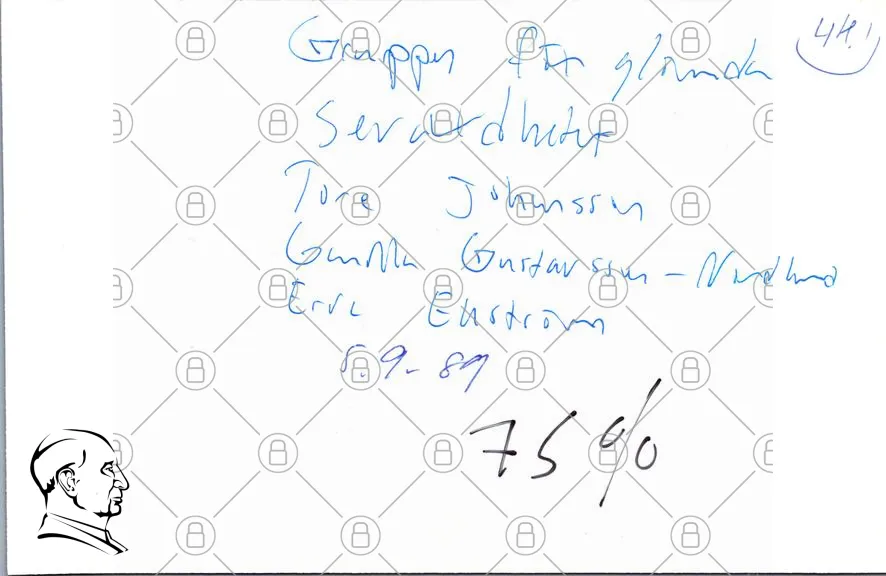 Gruppen för glömda
Tore Johansson
Gunilla Gustavsson-Nordlund
Eric Ekström
5.9-89
75%